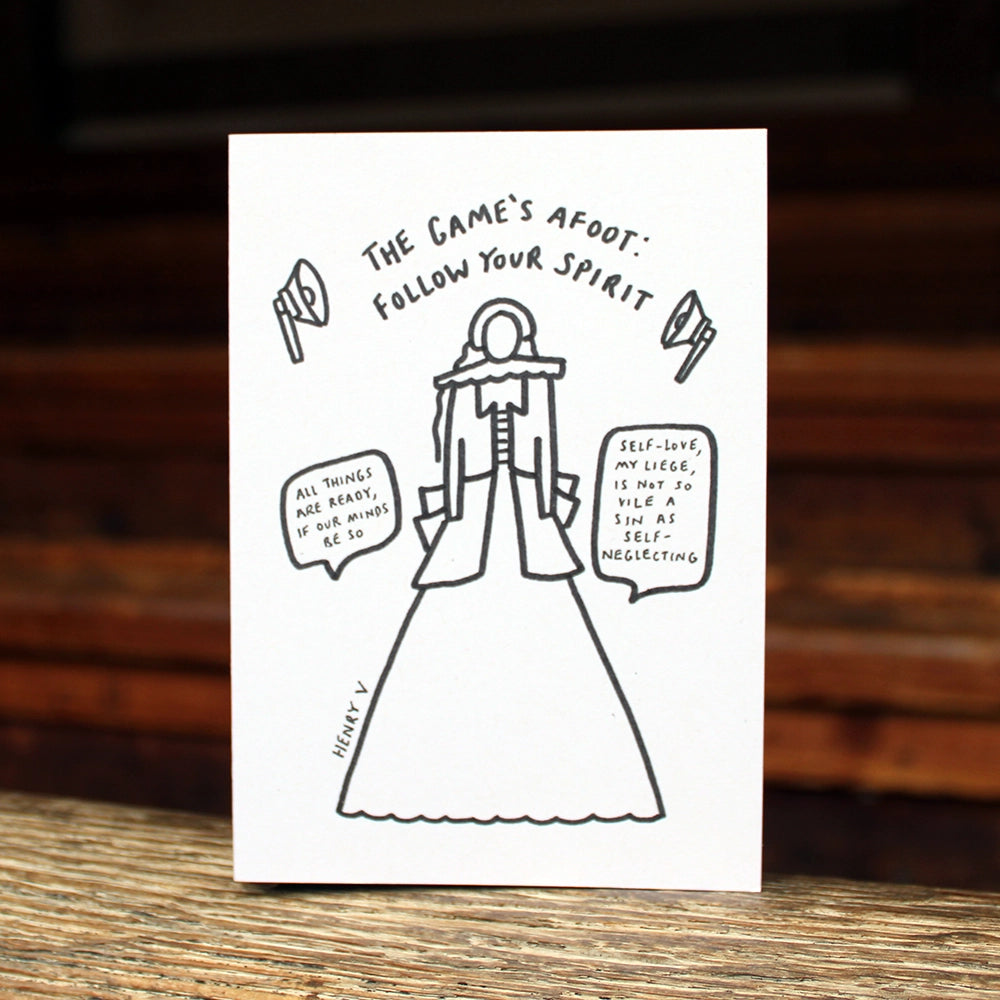 THE GAME'S AFOOT:
FOLLOW YOUR SPIRIT
ALL THINGS
ARE READY,
IF OUR MINDS
BE SO
SELF-LOVE,
MY LIEGE,
IS NOT SO
VILE A
SIN AS
SELF-
NEGLECTING
HENRY V